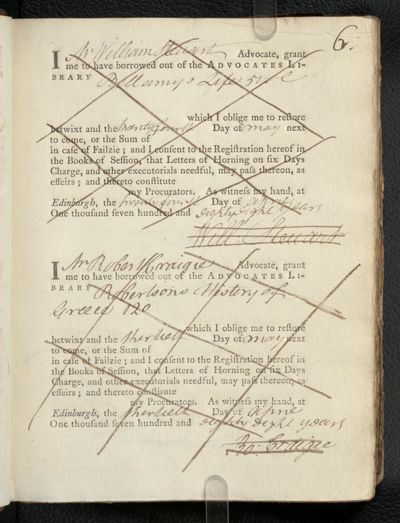 6.
I Mr William Steuart Advocate, grant
me to have borrowed out of the ADVOCATES LI-
BRARY Bellamys Lifes
which I oblige me to restore
betwixt and the twentyfourth Day of May next
to come, or the Sum of
in case of Failzie; and I consent to the Registration hereof in
the Books of Session, that Letters of Horning on six Days
Charge, and other executorials needful, may pass thereon, as
effeirs; and thereto constitute
my Procurators. As witness my hand, at
Edinburgh, the twentyfourth Day of Aprile
One thousand seven hundred and eighty eight years
Will Steuart
I Mr Robert Craigie Advocate, grant
me to have borrowed out of the ADVOCATES LI-
BRARY Robertsons History of
Greece 120
which I oblige me to restore
betwixt and the thertieth Day of May next
to come, or the Sum of
in case of Failzie; and I consent to the Registration hereof in
the Books of Session, that Letters of Horning on six Days
Charge, and other executorials needful, may pass thereon, as
effeirs; and thereto constitute
my Procurators. As witness my hand, at
Edinburgh, the thertieth Day of Aprile
One thousand seven hundred and eighty eight years
Ro: Craigie